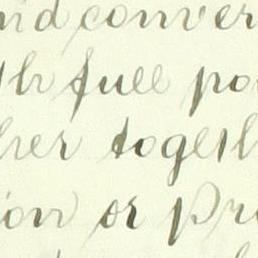 nd conver
th full po
her togeth
ion or Pr